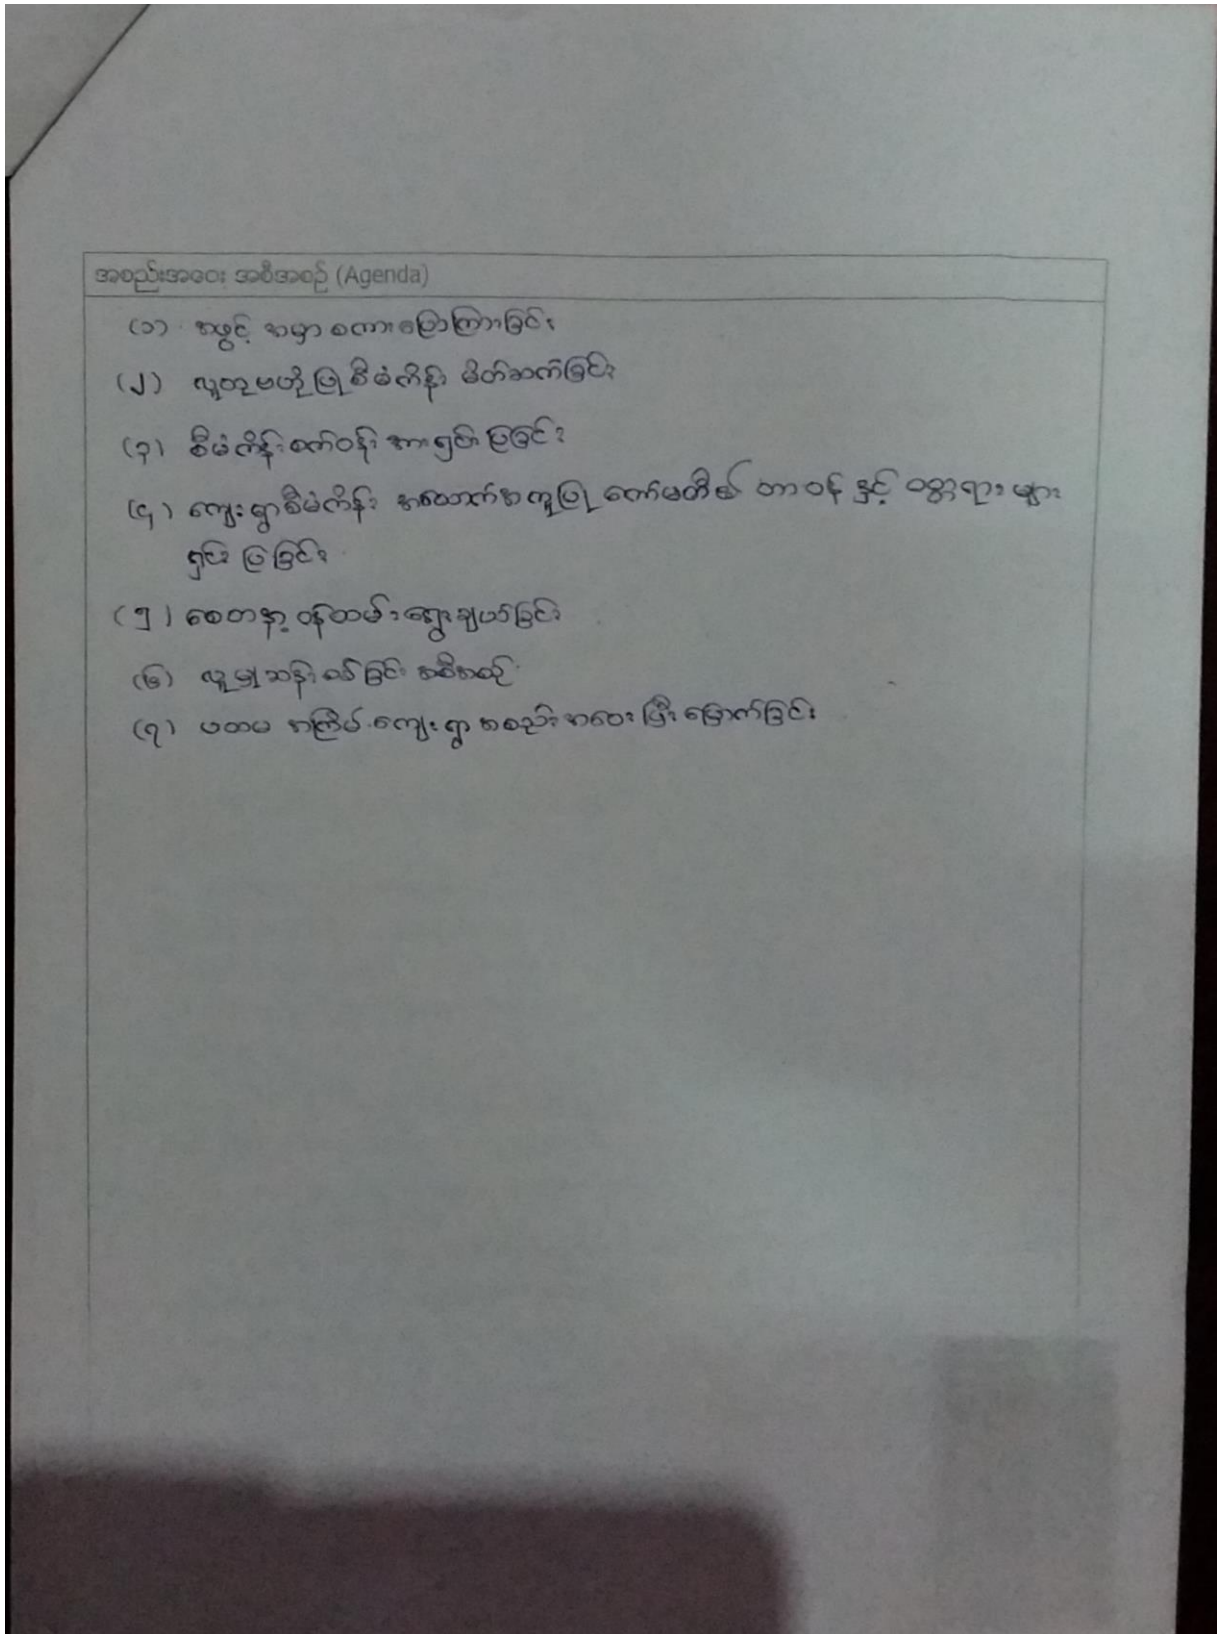 အစည်းအဝေး အစီအစဉ် (Agenda)
(၁) အဖွင့် အမှာ စကားပြောကြားခြင်း
(၂) လူထုဗဟိုပြုစီမံကိန်း မိတ်ဆက်ခြင်း
(၃) စီမံကိန်းစက်ဝန်း အားရှင်းပြခြင်း
(၄) ကျေးရွာစီမံကိန်း အထောက်အကူပြု ကော်မတီ၏ တာဝန် နှင့် ဝတ္တရား များ
ရှင်းပြခြင်း
(၅) စေတနာ့ ဝန်ထမ်းရွေးချယ်ခြင်း
(၆) လူမှုဆန်းစစ်ခြင်း အစီအစဉ်
(၇) ပထမ အကြိမ် ကျေးရွာ အစည်းအဝေး ပြီးမြောက်ခြင်း